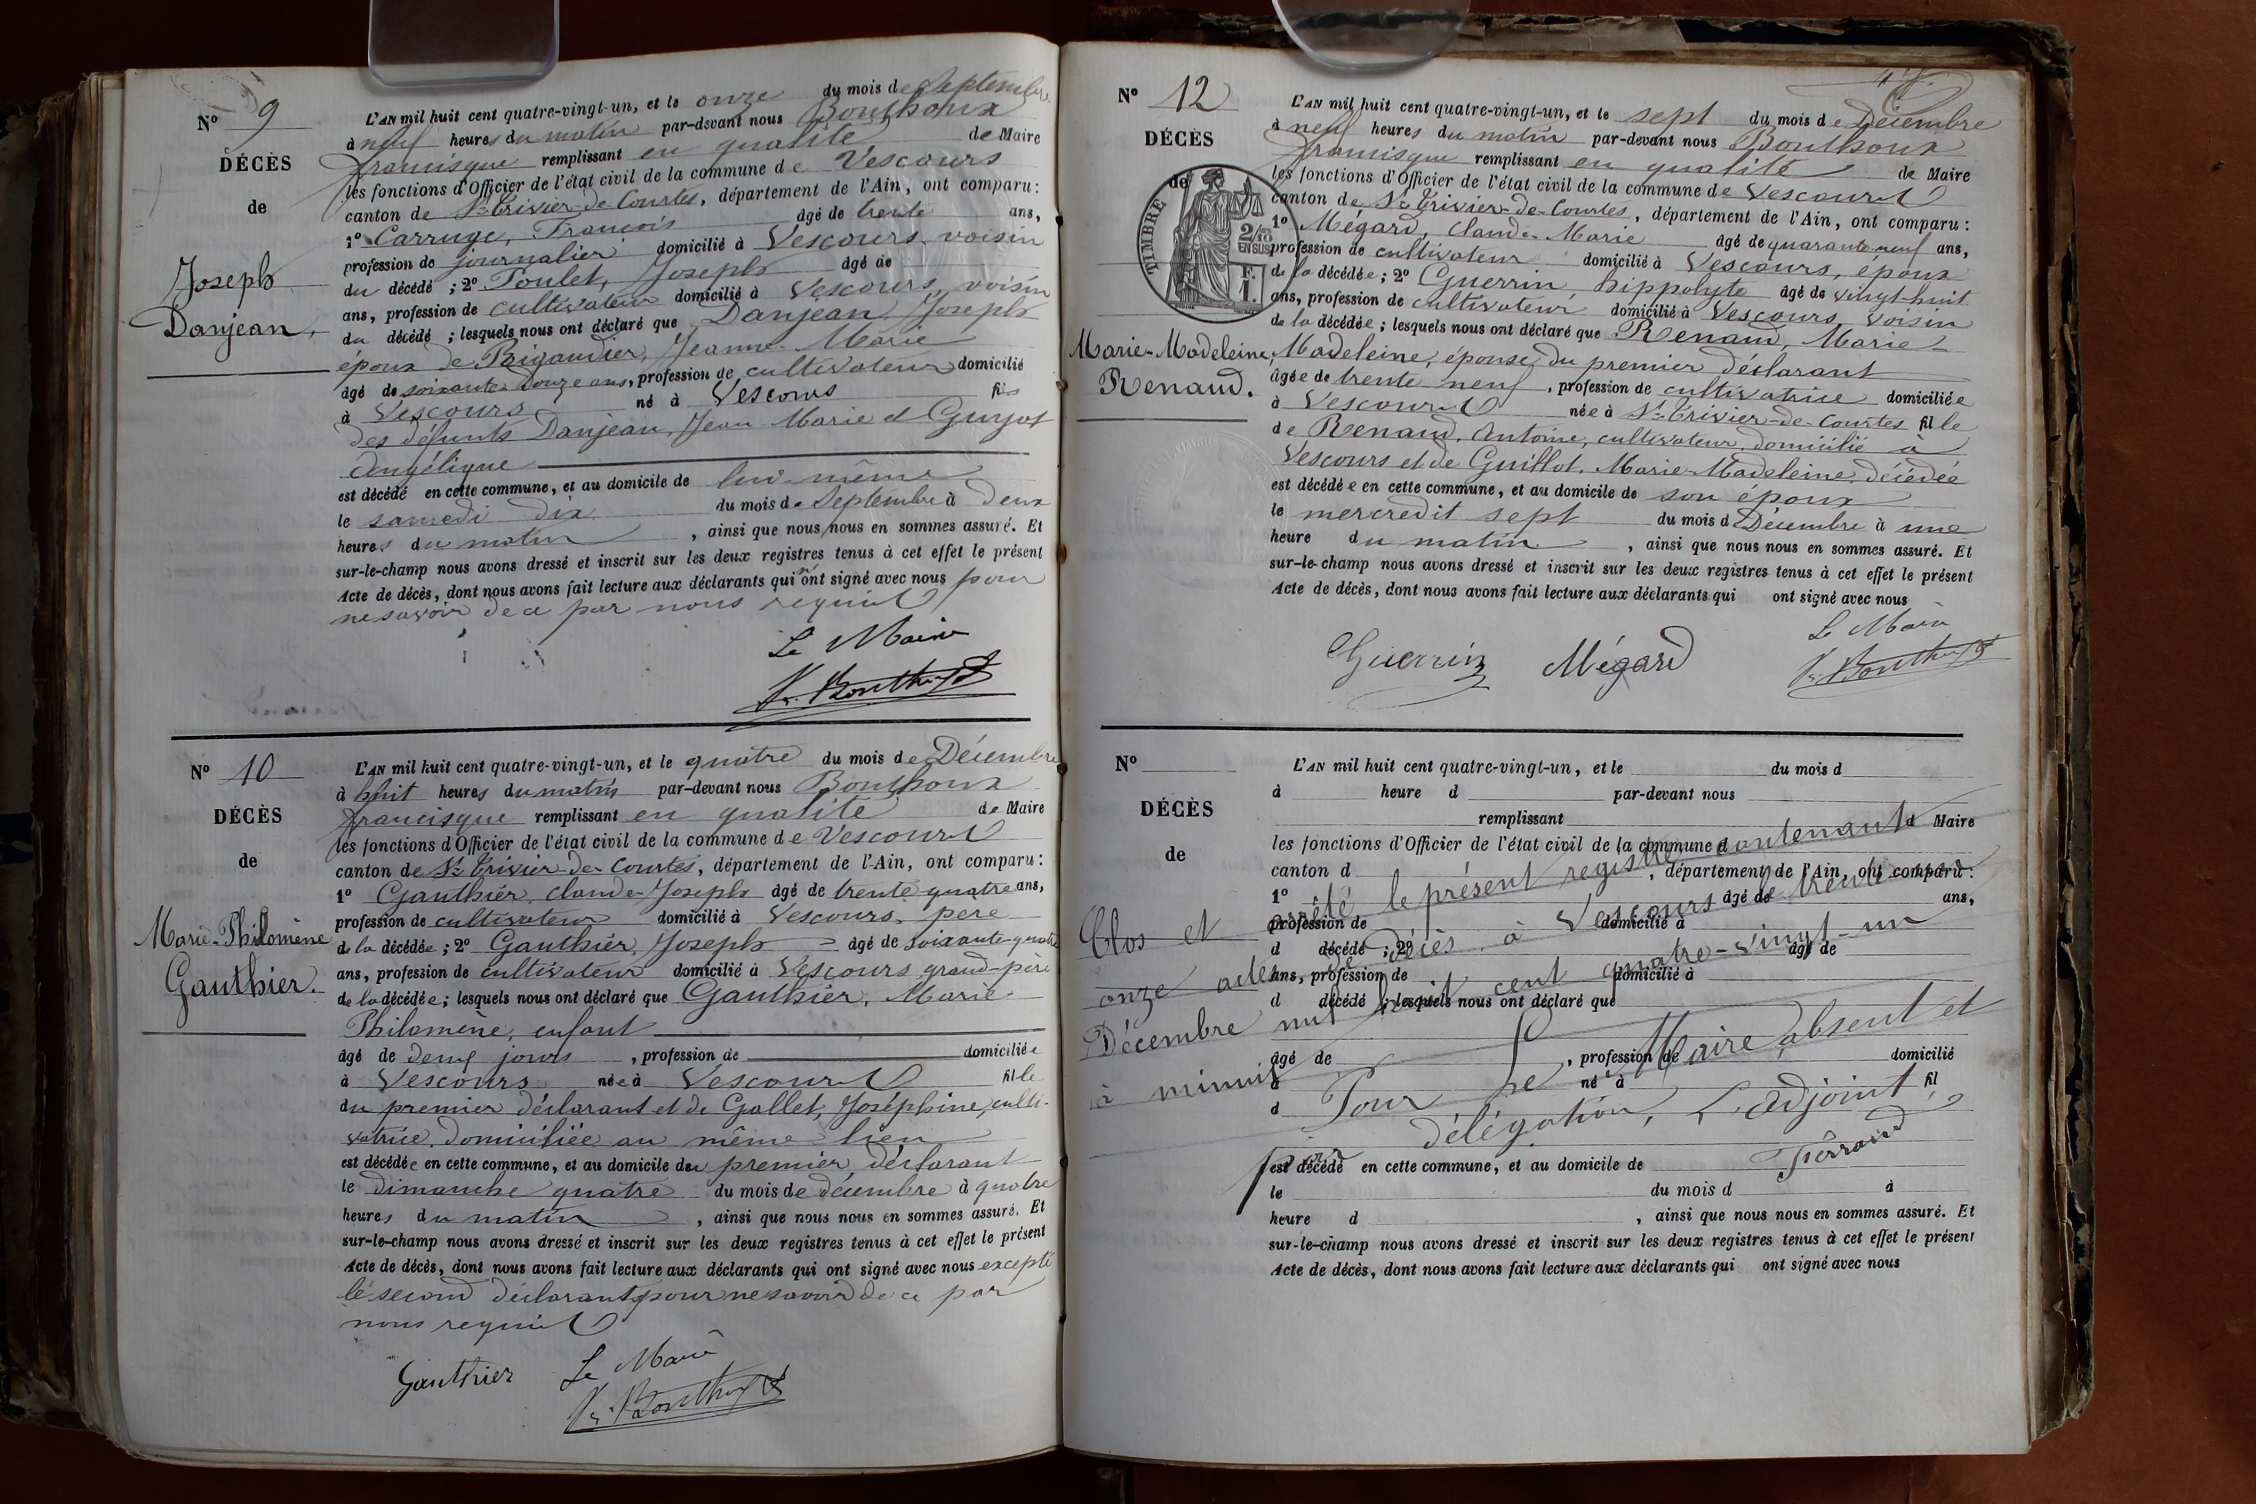 Nº 9
DÉCÈS
de
Joseph
Danjean.
L'AN mil huit cent quatre-vingt-un, et le onze du mois de Septembre
à neuf heures du matin par-devant nous Bouthoux
francisque remplissant en qualité de Maire
les fonctions d'Officier de l'état civil de la commune de Vescours
canton de St Trivier-de-Courtes, département de l'Ain, ont comparu:
1º Carruge, François âgé de trente ans,
profession de journalier domicilié à Vescours, voisin
du décédé ; 2º Poulet, Joseph âgé de
ans, profession de cultivateur domicilié à Vescours, voisin
du décédé ; lesquels nous ont déclaré que Danjean, Joseph
époux de Rigaudier, Jeanne-Marie
âgé de soixante-douze ans, profession de cultivateur domicilié
à Vescours né à Vescours fils
des défunts Danjean, Jean Marie et Guyot
Angélique
est décédé en cette commune, et au domicile de lui-même
le samedi dix du mois de Septembre à deux
heures du matin, ainsi que nous nous en sommes assuré. Et
sur-le-champ nous avons dressé et inscrit sur les deux registres tenus à cet effet le présent
Acte de décès, dont nous avons fait lecture aux déclarants qui n'ont signé avec nous pour
ne savoir de ce par nous requis
Le Maire
Fr. Bouthoux
Nº 10
DÉCÈS
de
Marie-Philomène
Gauthier.
L'AN mil huit cent quatre-vingt-un, et le quatre du mois de Décembre
à huit heures du matin par-devant nous Bouthoux
francisque remplissant en qualité de Maire
les fonctions d'Officier de l'état civil de la commune de Vescours
canton de St Trivier-de-Courtes, département de l'Ain, ont comparu:
1º Gauthier, Claude-Joseph âgé de trente-quatre ans,
profession de cultivateur domicilié à Vescours, père
de la décédée ; 2º Gauthier, Joseph âgé de soixante-quatre
ans, profession de cultivateur domicilié à Vescours, grand-père
de la décédée ; lesquels nous ont déclaré que Gauthier, Marie
Philomène, enfant
âgé de deux jours, profession de domiciliée
à Vescours née à Vescours fille
du premier déclarant et de Gallet, Joséphine, culti-
vatrice, domiciliée au même lieu
est décédée en cette commune, et au domicile du premier déclarant
le dimanche quatre du mois de décembre à quatre
heures du matin, ainsi que nous nous en sommes assuré. Et
sur-le-champ nous avons dressé et inscrit sur les deux registres tenus à cet effet le présent
Acte de décès, dont nous avons fait lecture aux déclarants qui ont signé avec nous excepté
le second déclarant pour ne savoir de ce par
nous requis
Gauthier Le Maire
Fr. Bouthoux
Nº 12
DÉCÈS
de
TIMBRE
2/10 EN SUS
F. 1.
Marie-Madeleine
Renaud.
L'AN mil huit cent quatre-vingt-un, et le sept du mois de Décembre
à neuf heures du matin par-devant nous Bouthoux
francisque remplissant en qualité de Maire
les fonctions d'Officier de l'état civil de la commune de Vescours
canton de St Trivier-de-Courtes, département de l'Ain, ont comparu:
1º Mégard, Claude-Marie âgé de quarante-neuf ans,
profession de cultivateur domicilié à Vescours, époux
de la décédée ; 2º Guerrin, hippolyte âgé de vingt-huit
ans, profession de cultivateur domicilié à Vescours, voisin
de la décédée ; lesquels nous ont déclaré que Renaud, Marie-
Madeleine, épouse du premier déclarant
âgée de trente neuf, profession de cultivatrice domiciliée
à Vescours née à St Trivier-de-Courtes fille
de Renaud, Antoine, cultivateur, domicilié à
Vescours et de Guillot, Marie-Madeleine, décédée
est décédée en cette commune, et au domicile de son époux
le mercredit sept du mois d Décembre à une
heure du matin, ainsi que nous nous en sommes assuré. Et
sur-le-champ nous avons dressé et inscrit sur les deux registres tenus à cet effet le présent
Acte de décès, dont nous avons fait lecture aux déclarants qui ont signé avec nous
Le Maire
Guerrin Mégard Fr. Bouthoux
Nº
DÉCÈS
de
L'AN mil huit cent quatre-vingt-un, et le du mois d
à heure d par-devant nous
remplissant d Maire
les fonctions d'Officier de l'état civil de la commune d
canton d , département de l'Ain, ont comparu:
1º âgé de ans,
profession de domicilié à
d décédé ; 2º âgé de
ans, profession de domicilié à
d décédé ; lesquels nous ont déclaré que
âgé de , profession de domicilié
à né à fil
d
est décédé en cette commune, et au domicile de
le du mois d à
heure d , ainsi que nous nous en sommes assuré. Et
sur-le-champ nous avons dressé et inscrit sur les deux registres tenus à cet effet le présent
Acte de décès, dont nous avons fait lecture aux déclarants qui ont signé avec nous
Clos et arrêté le présent registre contenant
onze actes de décès à Vescours le trente-un
Décembre mil huit cent quatre-vingt-un
à minuit
Pour le Maire absent et
par délégation, L'adjoint,
Ferrand